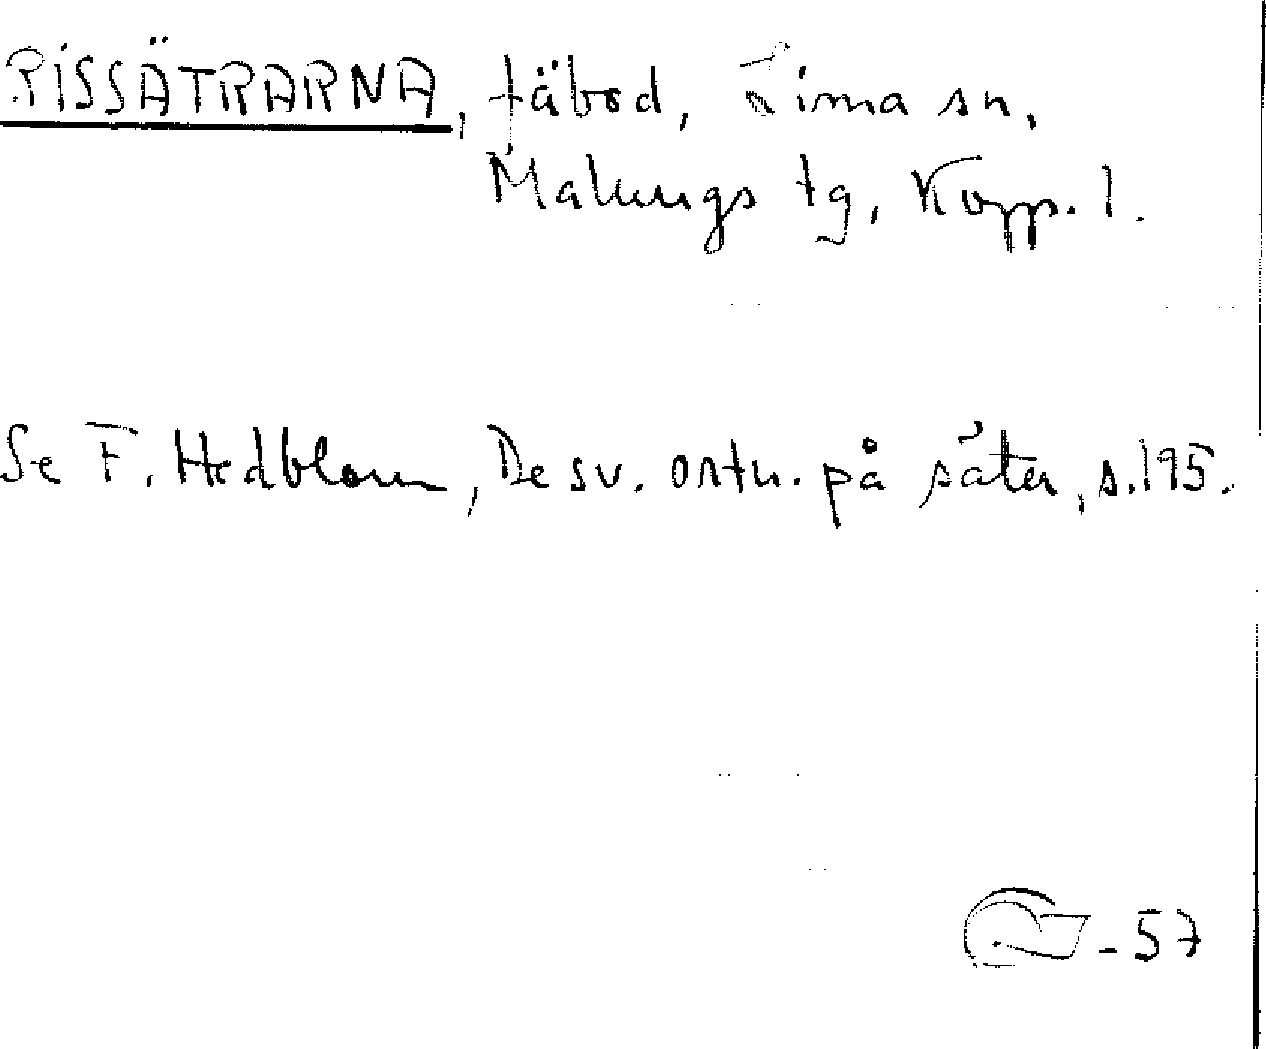 RISSÄTRARNA, fäbod, Lima sn,
Malungs tg, Kopp. l.
Se F. Hedblom, De sv. ortn. på säter, s. 195.
-57